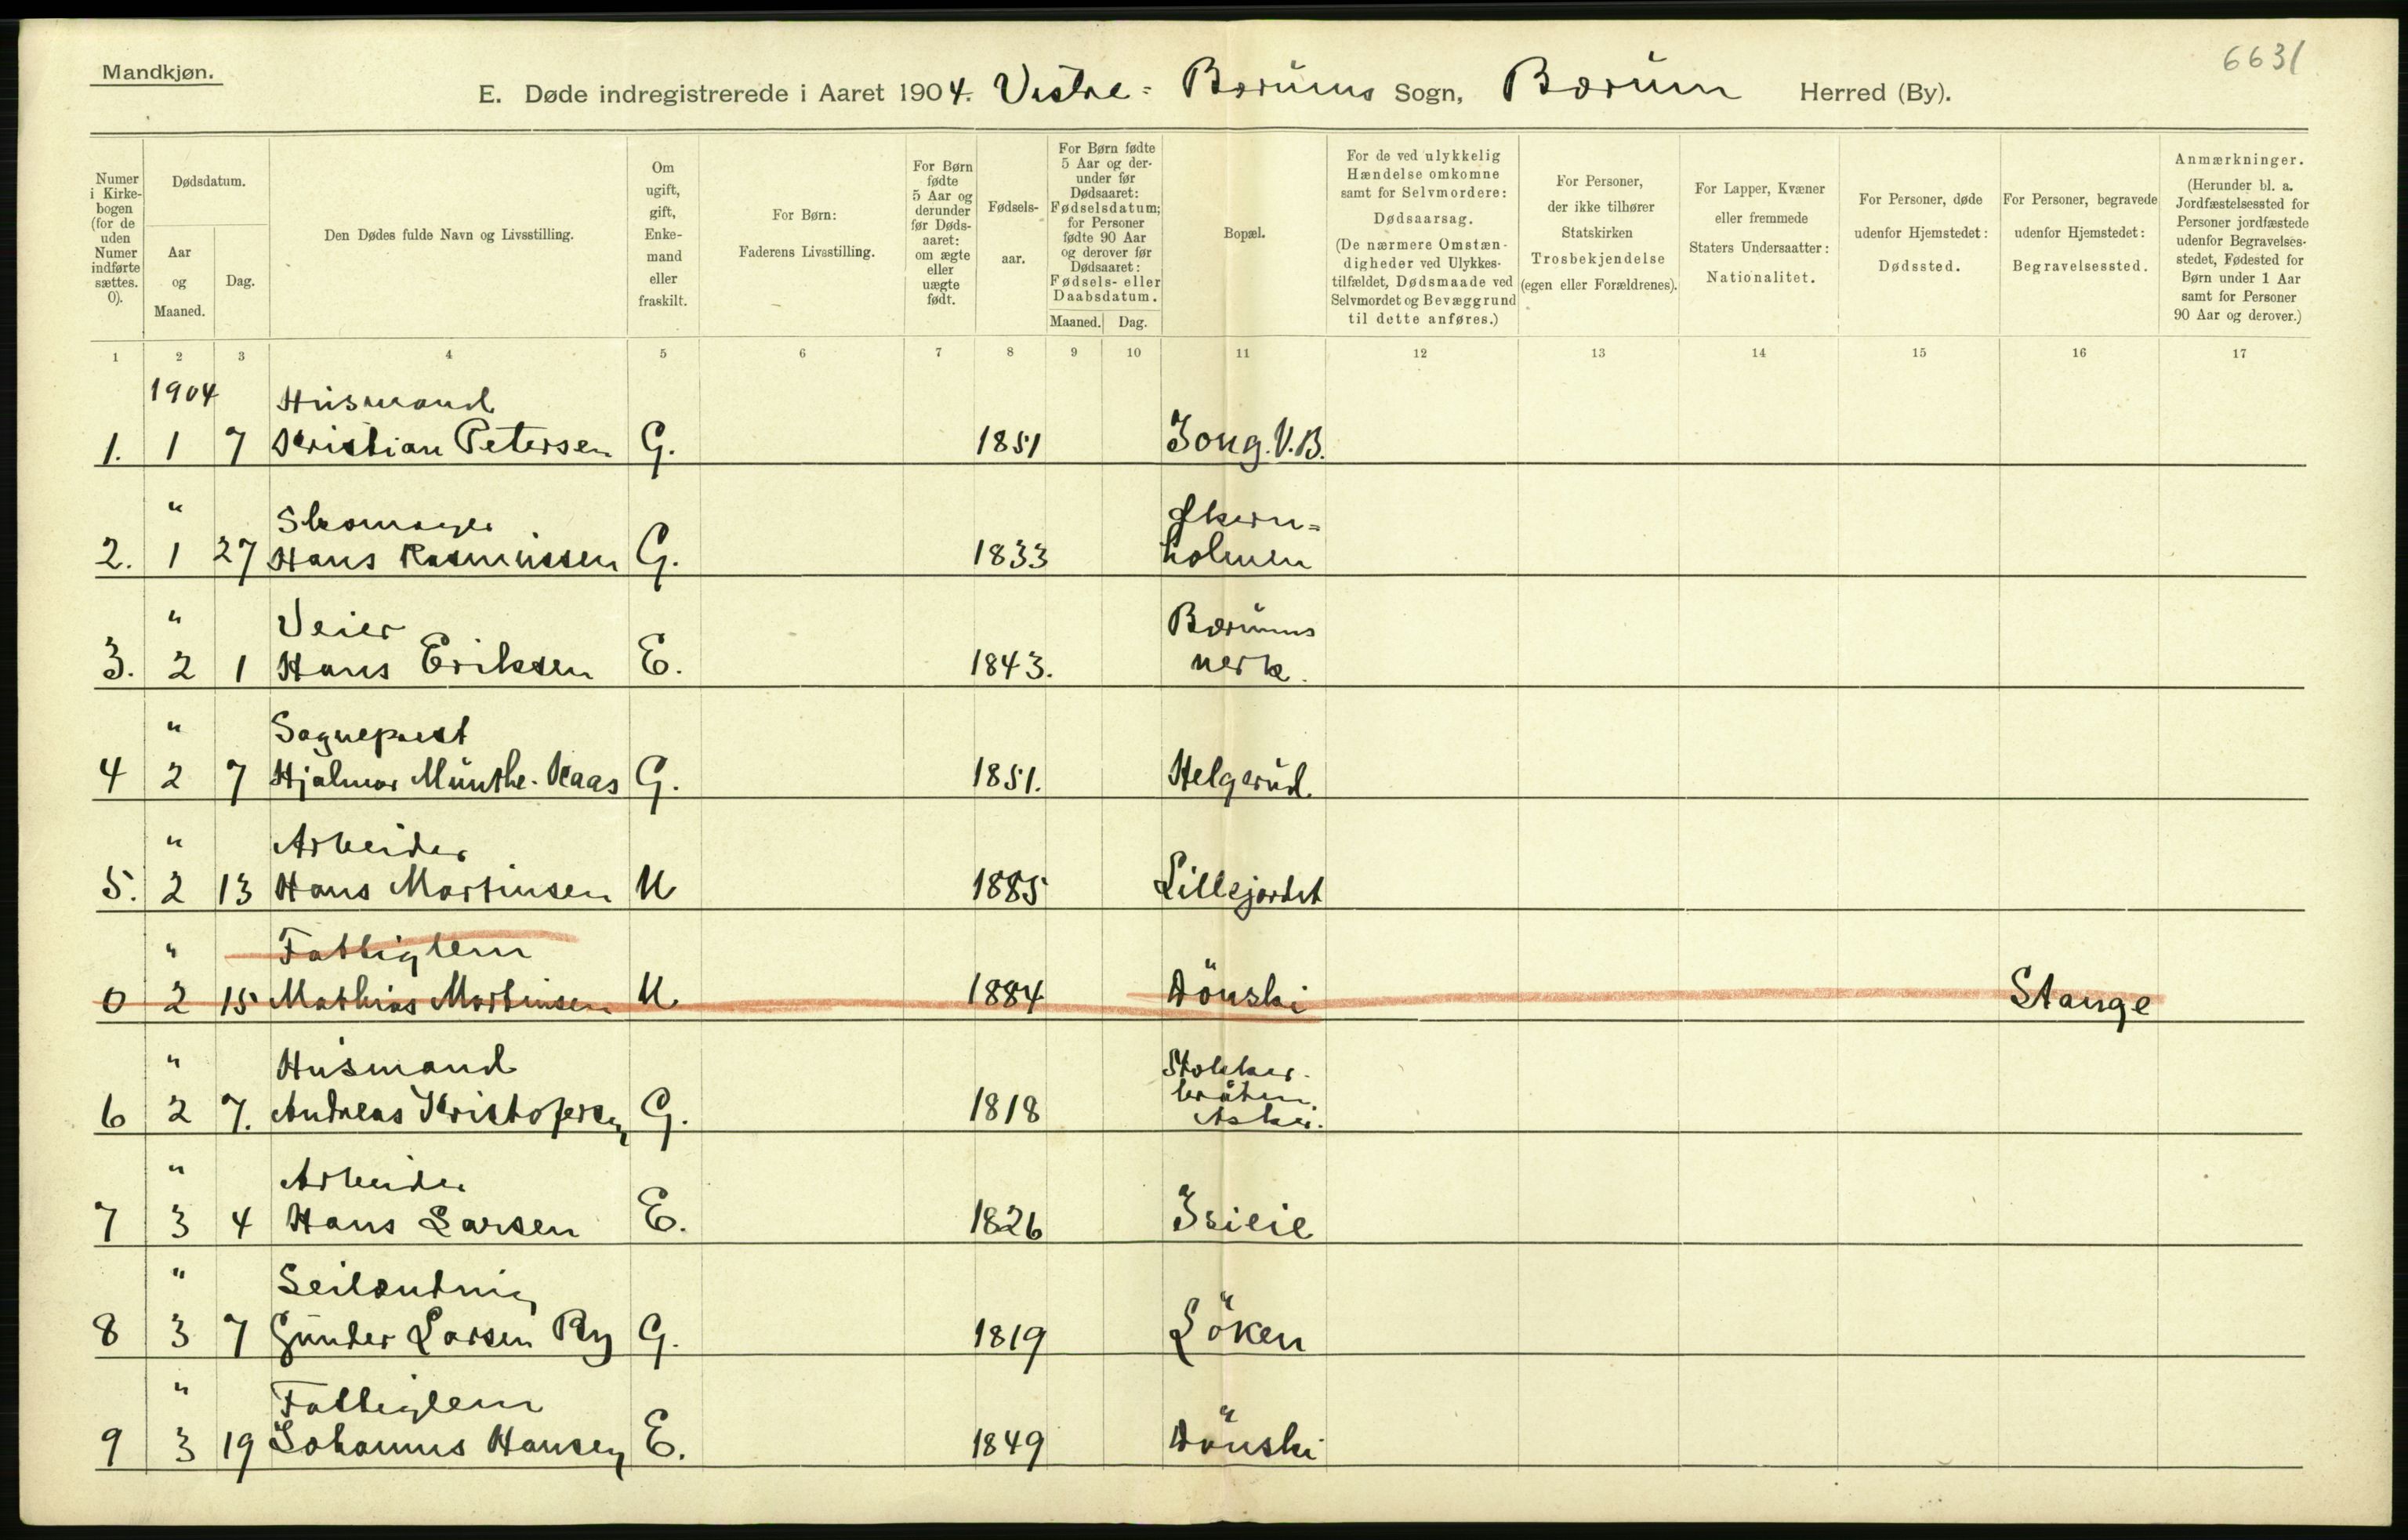 6631
Mandkjøn.
E. Døde indregistrerede i Aaret 1904. Vestre = Bærums Sogn, Bærum Herred (By).
Numer i Kirkebogen (for de uden Numer indførte sættes. 0).
Dødsdatum.
Aar og Maaned.
Dag.
Den Dødes fulde Navn og Livsstilling.
Om ugift, gift, Enkemand eller fraskilt.
For Børn: Faderens Livsstilling.
For Børn fødte 5 Aar og derunder før Dødsaaret: om ægte eller uægte født.
Fødselsaar.
For Børn fødte 5 Aar og derunder før Dødsaaret: Fødselsdatum; for Personer fødte 90 Aar og derover før Dødsaaret: Fødsels- eller Daabsdatum.
Maaned. Dag.
Bopæl.
For de ved ulykkelig Hændelse omkomne samt for Selvmordere: Dødsaarsag. (De nærmere Omstændigheder ved Ulykkestilfældet, Dødsmaade ved Selvmordet og Bevæggrund til dette anføres.)
For Personer, der ikke tilhører Statskirken Trosbekjendelse (egen eller Forældrenes).
For Lapper, Kvæner eller fremmede Staters Undersaatter: Nationalitet.
For Personer, døde udenfor Hjemstedet: Dødssted.
For Personer, begravede udenfor Hjemstedet: Begravelsessted.
Anmærkninger. (Herunder bl. a. Jordfæstelsessted for Personer jordfæstede udenfor Begravelsesstedet, Fødested for Børn under 1 Aar samt for Personer 90 Aar og derover.)
1 2 3 4 5 6 7 8 9 10 11 12 13 14 15 16 17
1904 Husmand
1. 1 7 Kristian Petersen G. 1851 Jong. V.B.
" Skomager Skern=
2. 1 27 Hans Rasmussen G. 1833 holmen
" Veier Bærums
3. 2 1 Hans Eriksen E. 1843. verk.
" Sognepræst
4 2 7 Hjalmar Munthe-Kaas G. 1851. Helgerud.
" Arbeider
5. 2 13 Hans Martinsen U 1885 Lillejordet
" Fattiglem
0 2 15 Mathias Martinsen U. 1884 Dönski Stange
" Husmand Stokker-
6 2 7. Andreas Kristofersen G. 1818 bråten. Asker.
" Arbeider
7 3 4 Hans Larsen E. 1826 Isieie
"
8 3 7 Gunder Larsen Ry G. 1819 Löken
" Fattiglem
9 3 19 Johannes Hansen E. 1849 Dönski